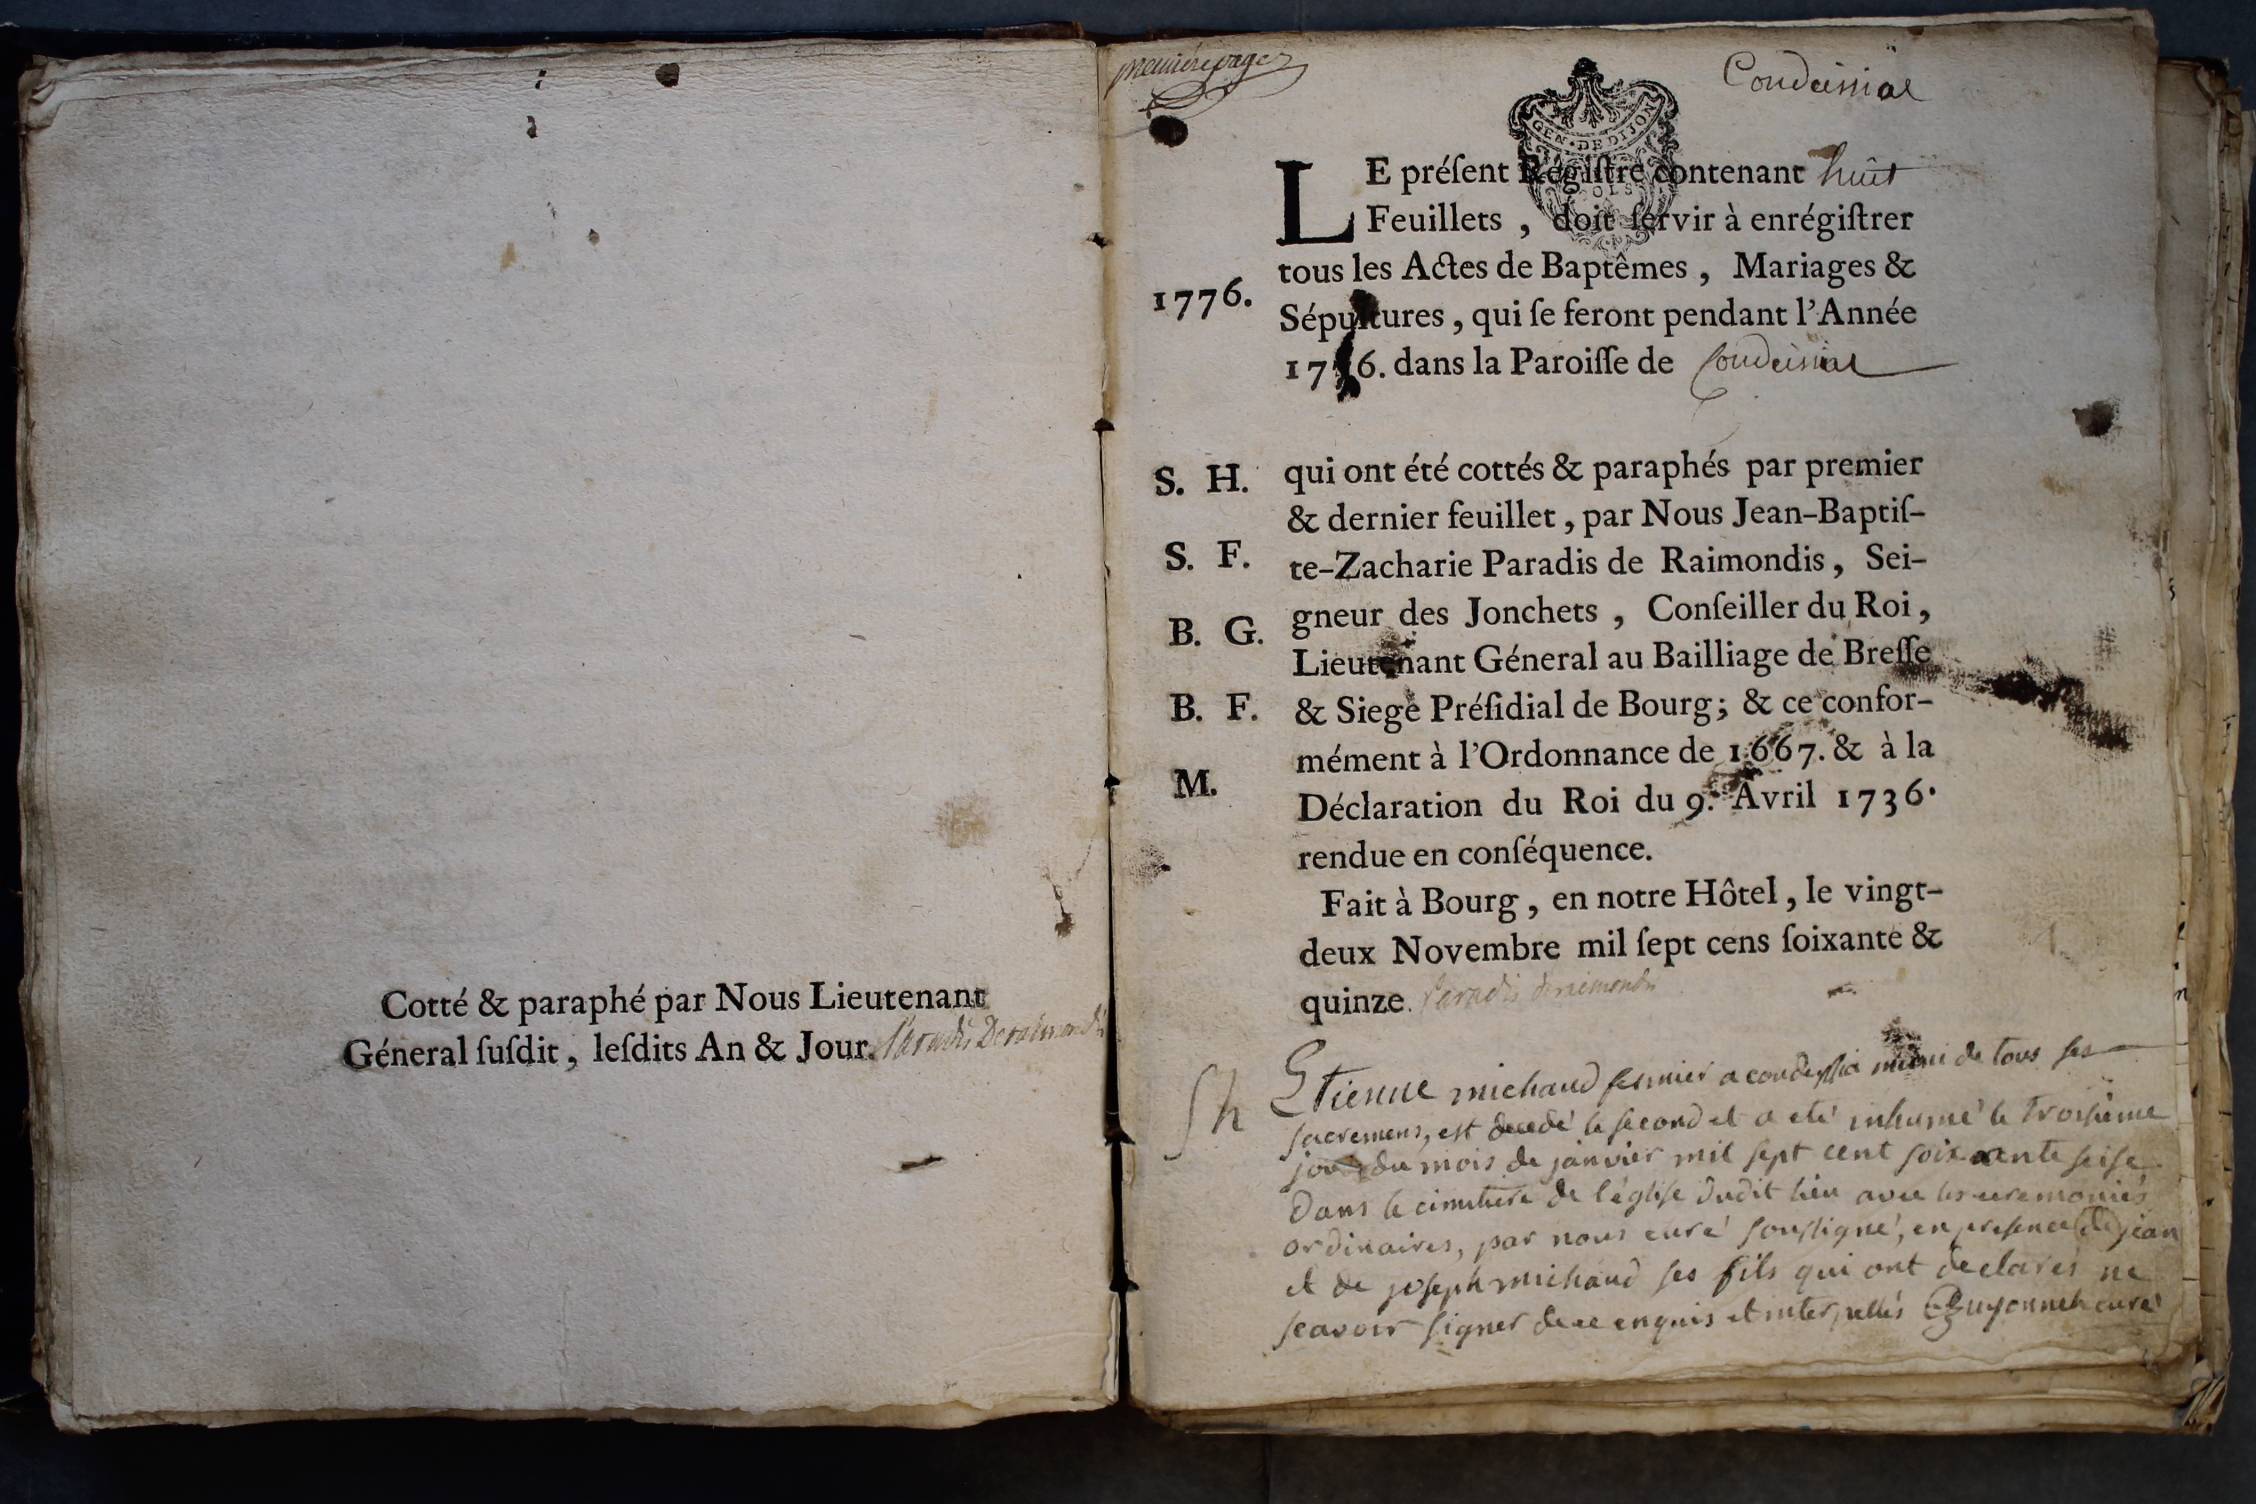 Cotté & paraphé par Nous Lieutenant
Géneral ſuſdit, leſdits An & Jour. Paradis Deraimondis
premiere page
Condeissiat
GEN. DE DIJON
LE préſent Régiſtre contenant huit
Feuillets, doit ſervir à enrégiſtrer
tous les Actes de Baptêmes, Mariages &
1776.
Sépultures, qui ſe feront pendant l'Année
1776. dans la Paroiſſe de Condeissiat
S. H.
qui ont été cottés & paraphés par premier
& dernier feuillet, par Nous Jean-Baptiſ-
S. F.
te-Zacharie Paradis de Raimondis, Sei-
gneur des Jonchets, Conſeiller du Roi,
B. G.
Lieutenant Géneral au Bailliage de Breſſe
B. F.
& Siege Préſidial de Bourg; & ce confor-
mément à l'Ordonnance de 1667. & à la
M.
Déclaration du Roi du 9. Avril 1736.
rendue en conſéquence.
Fait à Bourg, en notre Hôtel, le vingt-
deux Novembre mil ſept cens ſoixante &
quinze. Paradis deraimondis
Sh
Etienne michaud fermier a condeyssia muni de tous ses
sacremens, est decedé le second et a eté inhumé le troisième
jour du mois de janvier mil sept cent soixante seise
dans le cimetiere de l'église dudit lieu avec les ceremonies
ordinaires, par nous curé soussigné, en presence de jean
et de joseph michaud ses fils qui ont declarés ne
scavoir signer de ce enquis et interpellés Guyonnet curé